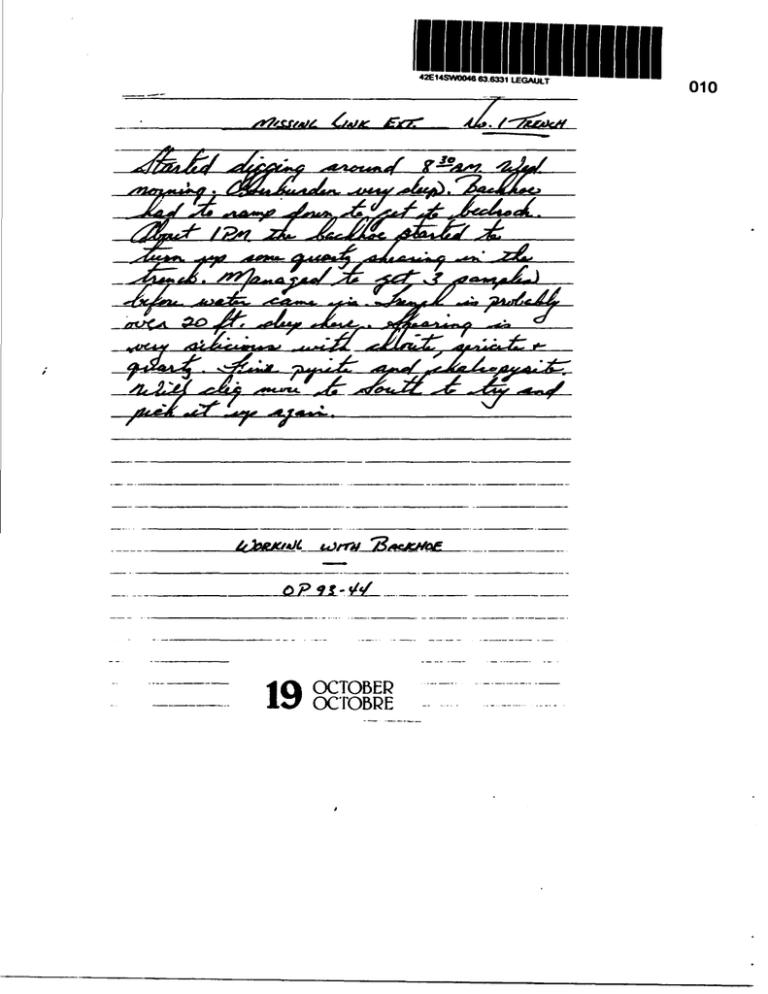 42E14SW0046 63.6331 LEGAULT
010
MISSING LINK EXT. No. 1 TRENCH
Started digging around 8 30 AM. Wed
morning. Overburden very deep. Backhoe
had to ramp down to get to bedrock.
About 1 PM the backhoe started to
turn up some quartz shearing in the
trench. Managed to get 3 samples
before water came in. Trench is probably
over 20 ft. deep here. Shearing is
very silicious with chlorite, sericite +
quartz. Fine pyrite and chalcopysite.
Will dig more to South to try and
pick it up again.
WORKING WITH BACKHOE
OP 93-44
19 OCTOBER
OCTOBRE